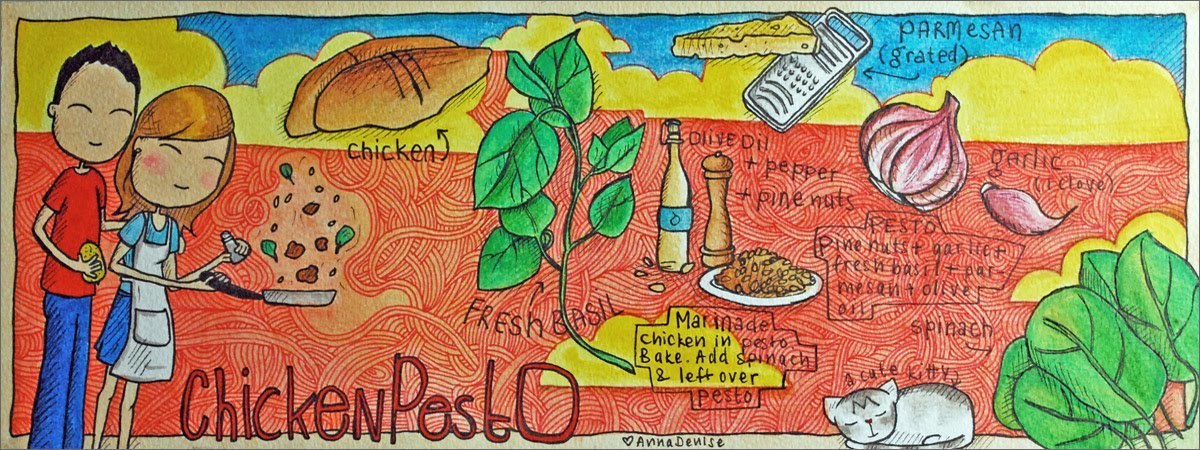 PARMESAN
(grated)
chicken
OLIVE OIL
+ pepper
+ pine nuts
garlic
(1 clove)
FRESH BASIL
PESTO
Pine nuts + garlic +
fresh basil + par-
mesan + olive
oil
spinach
Marinade
chicken in pesto
Bake. Add spinach
& left over
pesto
a cute kitty
ChickenPesto
♡AnnaDenise